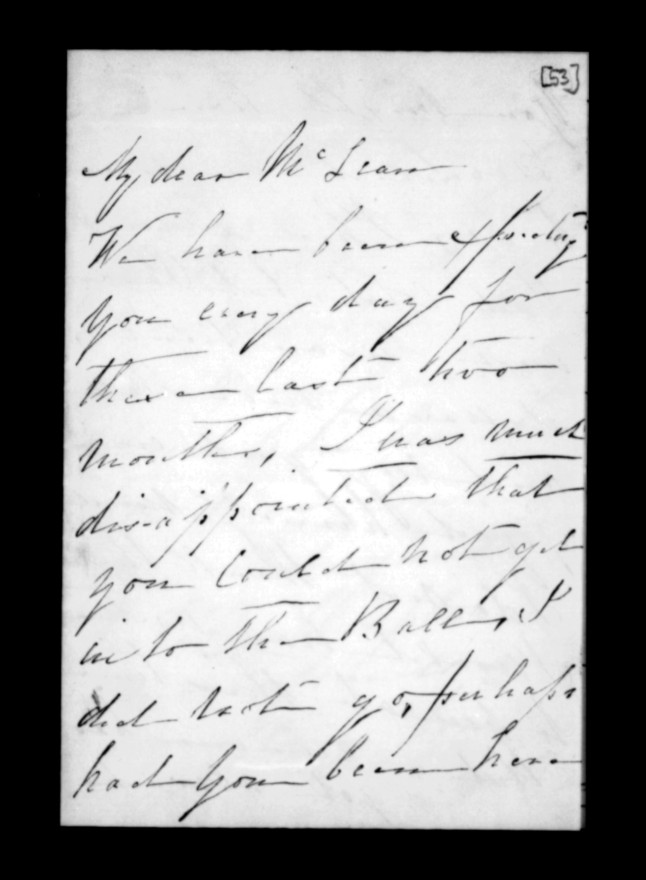 [53]
My dear McLean
We have been expecting
you every day for
these last two
months, I was much
disappointed that
you could not get
in to the Ball, I
did not go, perhaps
had you been here